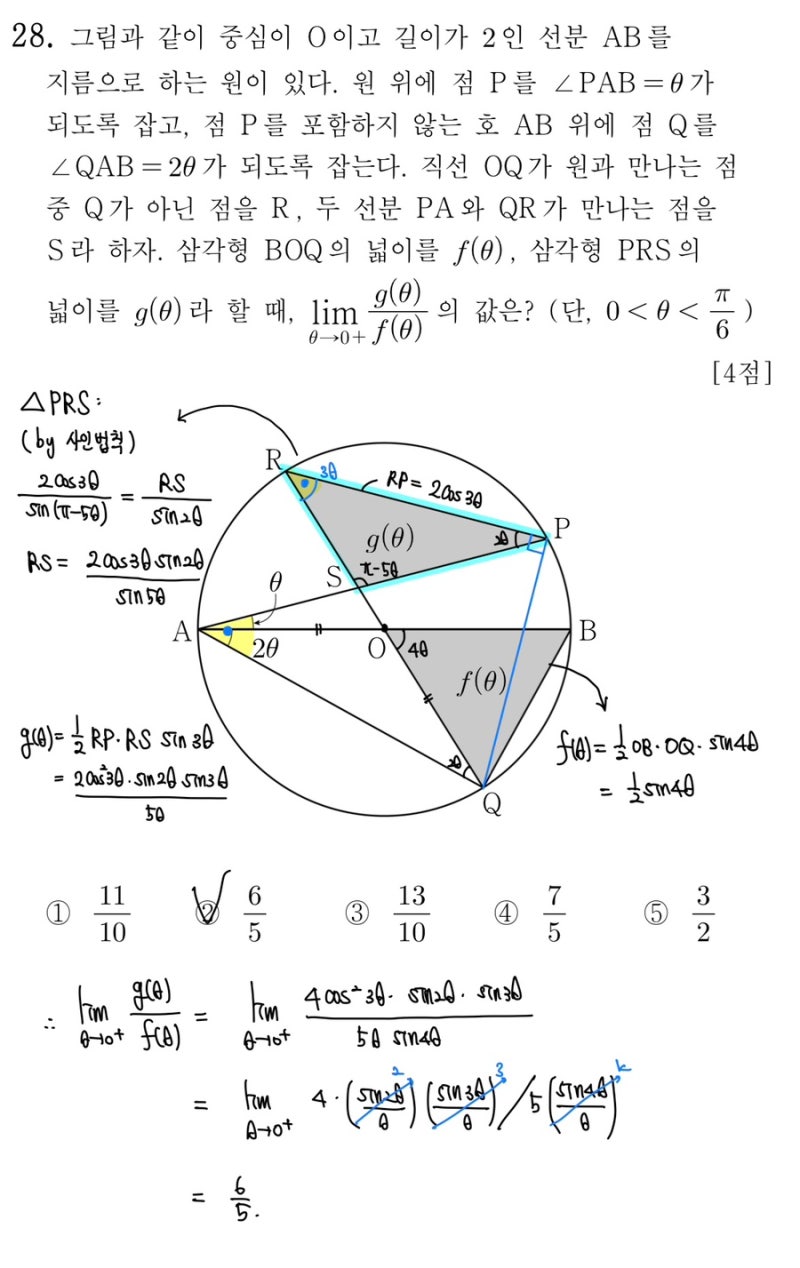 28. 그림과 같이 중심이 O이고 길이가 2인 선분 AB를
지름으로 하는 원이 있다. 원 위에 점 P를 ∠PAB=θ가
되도록 잡고, 점 P를 포함하지 않는 호 AB 위에 점 Q를
∠QAB=2θ가 되도록 잡는다. 직선 OQ가 원과 만나는 점
중 Q가 아닌 점을 R, 두 선분 PA와 QR가 만나는 점을
S라 하자. 삼각형 BOQ의 넓이를 f(θ), 삼각형 PRS의
넓이를 g(θ)라 할 때, lim θ→0+ g(θ)/f(θ) 의 값은? (단, 0<θ<π/6)
[4점]
△PRS:
(by 사인법칙)
2cos3θ/sin(π-5θ) = RS/sin2θ
RS = 2cos3θ sin2θ/sin5θ
R
3θ
RP= 2cos3θ
P
g(θ)
2θ
S
π-5θ
θ
A
2θ
O
4θ
B
f(θ)
2θ
Q
g(θ)= 1/2 RP·RS sin3θ
= 2cos²3θ·sin2θ sin3θ/5θ
f(θ)= 1/2 OB·OQ·sin4θ
= 1/2 sin4θ
① 11/10 ② 6/5 ③ 13/10 ④ 7/5 ⑤ 3/2
∴ lim θ→0+ g(θ)/f(θ) = lim θ→0+ 4cos²3θ·sin2θ·sin3θ/5θ sin4θ
= lim θ→0+ 4·(sin2θ/θ)² (sin3θ/θ)³ / 5(sin4θ/θ)
= 6/5.